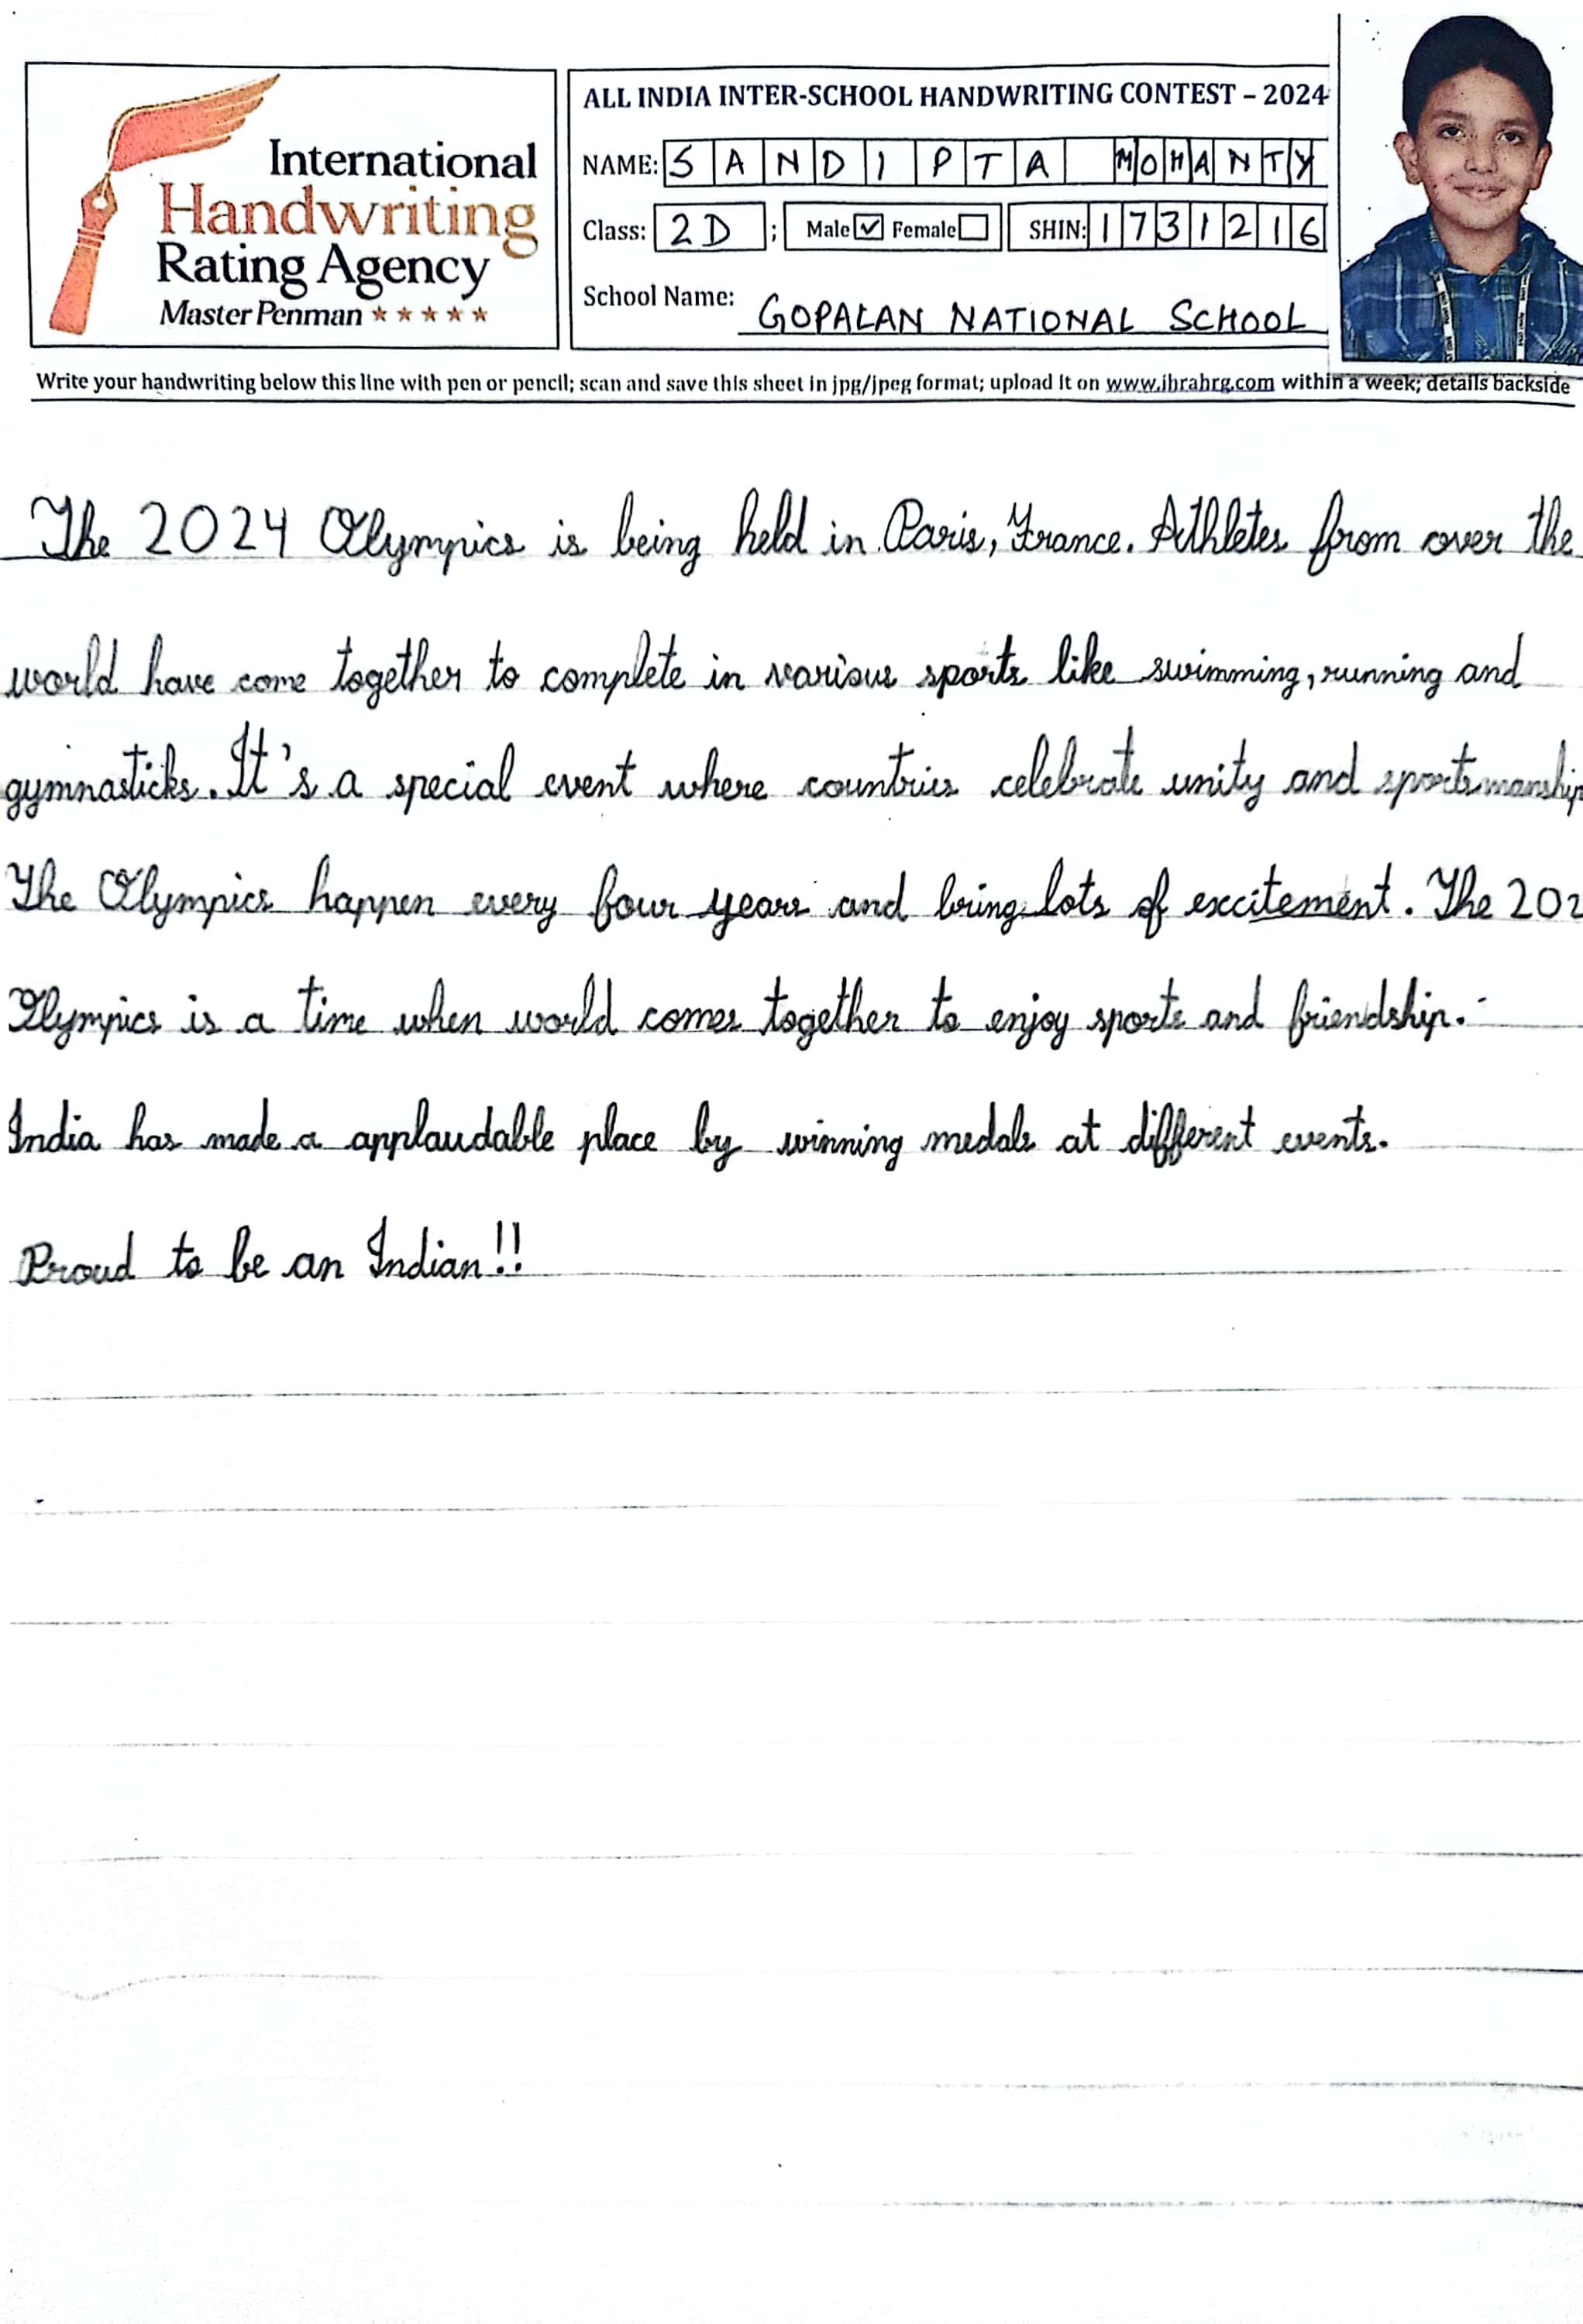 International
Handwriting
Rating Agency
Master Penman ★★★★★
ALL INDIA INTER-SCHOOL HANDWRITING CONTEST – 2024
NAME: SANDIPTA MOHANTY
Class: 2D ; Male ☑ Female ☐ SHIN: 1731216
School Name: GOPALAN NATIONAL SCHOOL
Write your handwriting below this line with pen or pencil; scan and save this sheet in jpg/jpeg format; upload it on www.ihrahrg.com within a week; details backside
The 2024 Olympics is being held in Paris, France. Athletes from over the
world have come together to complete in various sports like swimming, running and
gymnasticks. It's a special event where countries celebrate unity and sportsmanship
The Olympics happen every four years and bring lots of excitement. The 202
Olympics is a time when world comes together to enjoy sports and friendship.
India has made a applaudable place by winning medals at different events.
Proud to be an Indian!!